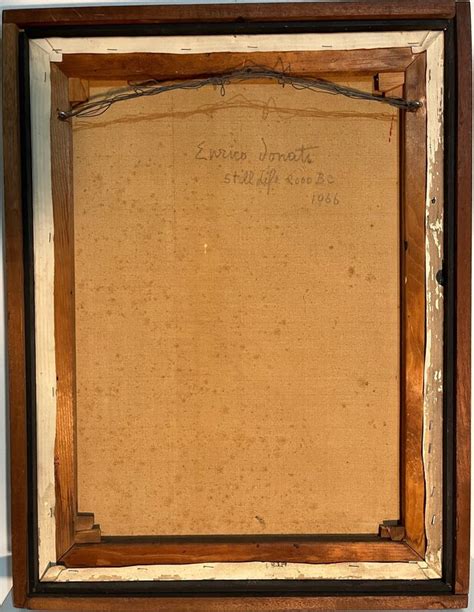 Enrico Donati
Still Life 2000 BC
1966